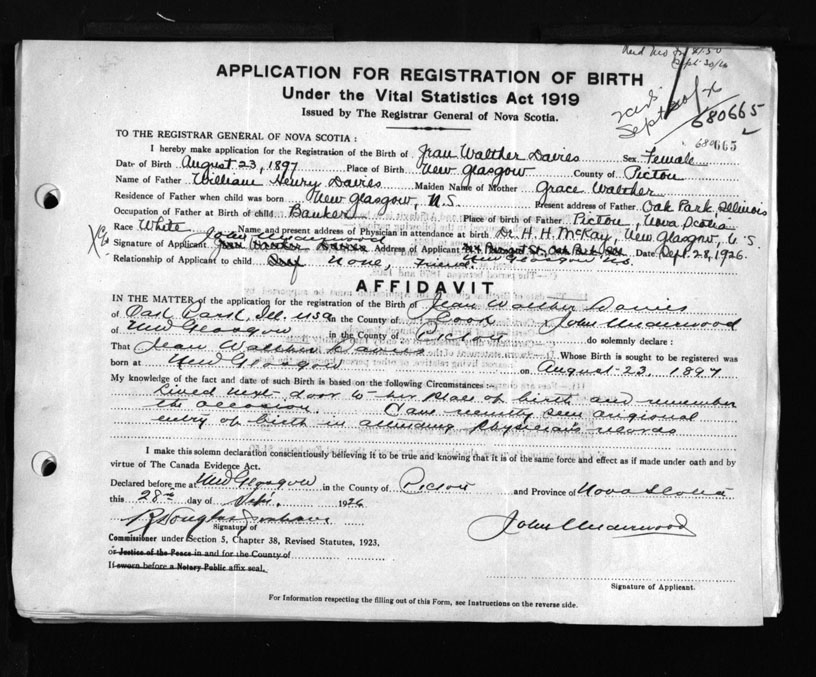 APPLICATION FOR REGISTRATION OF BIRTH
Under the Vital Statistics Act 1919
Issued by The Registrar General of Nova Scotia.
680665
680665
TO THE REGISTRAR GENERAL OF NOVA SCOTIA :
I hereby make application for the Registration of the Birth of Jean Walther Davies Sex Female
Date of Birth August 23, 1897 Place of Birth New Glasgow County of Pictou
Name of Father William Henry Davies Maiden Name of Mother Grace Walther
Residence of Father when child was born New Glasgow, N.S. Present address of Father Oak Park, Illinois
Occupation of Father at Birth of child Banker Place of birth of Father Pictou, Nova Scotia
Race White Name and present address of Physician in attendance at birth Dr. H. H. McKay, New Glasgow, N.S.
John Underwood
Signature of Applicant Jean Walther Davies Address of Applicant Oak Park, Date Sept. 28, 1926.
New Glasgow N.S.
Relationship of Applicant to child Self None, Friend
AFFIDAVIT
IN THE MATTER of the application for the registration of the Birth of Jean Walther Davies
of Oak Park, Ill. USA in the County of Cook John Underwood
of New Glasgow in the County of Pictou do solemnly declare :
That Jean Walther Davies Whose Birth is sought to be registered was
born at New Glasgow on August 23, 1897
My knowledge of the fact and date of such Birth is based on the following Circumstances :-
Lived next door to her place of birth and remember
the occasion. Have recently seen original
entry of birth in attending Physician's records
I make this solemn declaration conscientiously believing it to be true and knowing that it is of the same force and effect as if made under oath and by
virtue of The Canada Evidence Act.
Declared before me at New Glasgow in the County of Pictou and Province of Nova Scotia
this 28th day of Sept. 1926
R Douglas Graham John Underwood
Signature of
Commissioner under Section 5, Chapter 38, Revised Statutes, 1923,
or Justice of the Peace in and for the County of
If sworn before a Notary Public affix seal.
Signature of Applicant.
For Information respecting the filling out of this Form, see Instructions on the reverse side.